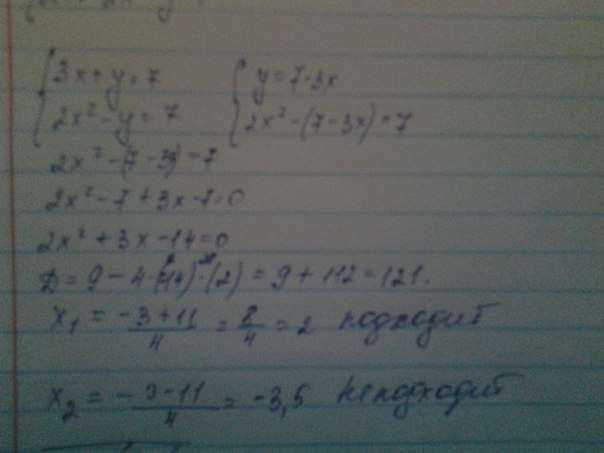 3x+y=7 y=7-3x
2x²-y=7 2x²-(7-3x)=7
2x²-(7-3x)=7
2x²-7+3x-7=0
2x²+3x-14=0
D=9-4·(-14)·(2)=9+112=121.
x₁=-3+11/4=8/4=2 подходит
x₂=-3-11/4=-3,5 не подходит